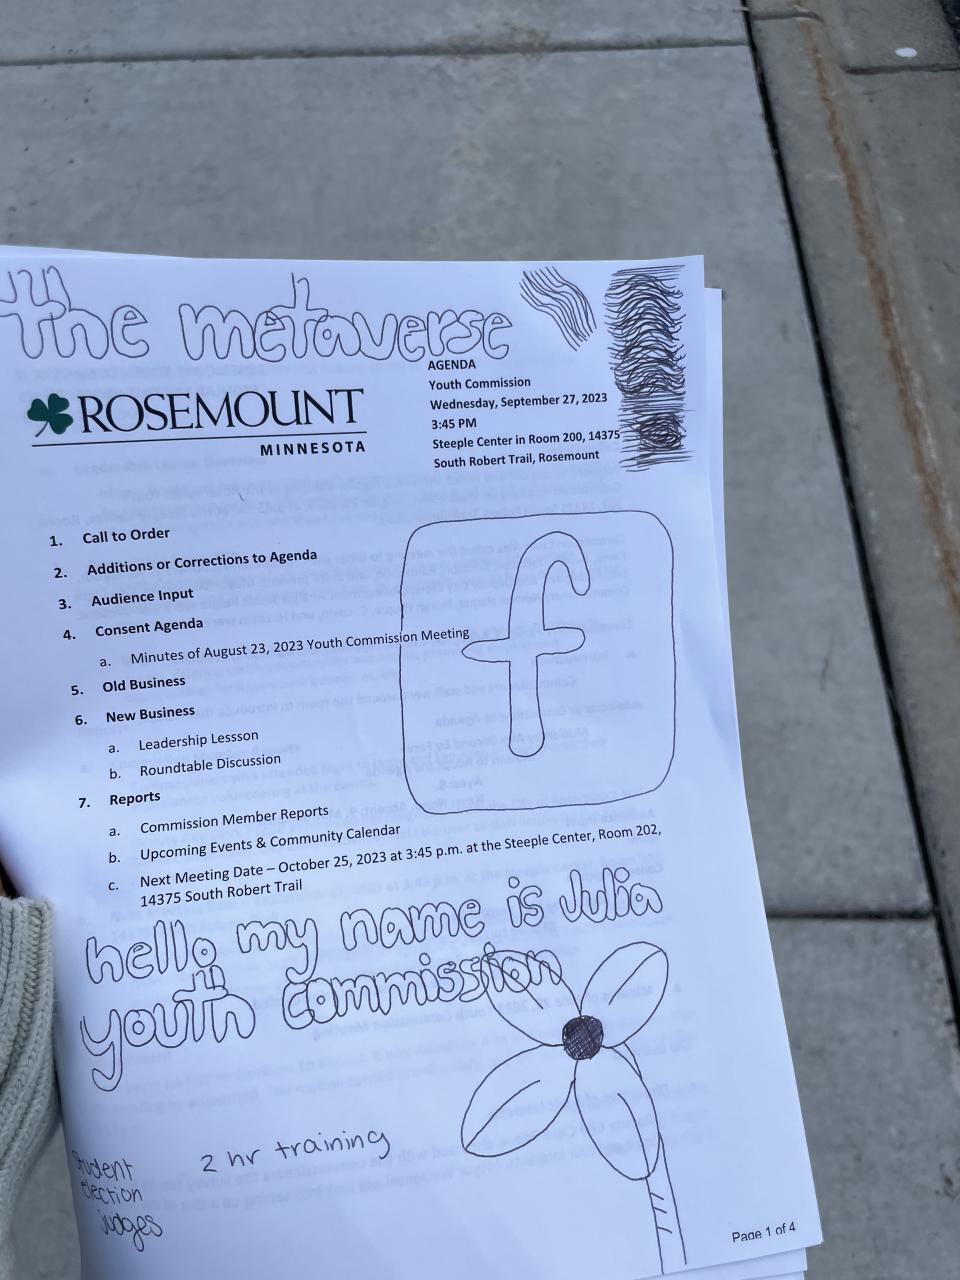 the metaverse
ROSEMOUNT
MINNESOTA
AGENDA
Youth Commission
Wednesday, September 27, 2023
3:45 PM
Steeple Center in Room 200, 14375
South Robert Trail, Rosemount
1. Call to Order
2. Additions or Corrections to Agenda
3. Audience Input
4. Consent Agenda
a. Minutes of August 23, 2023 Youth Commission Meeting
5. Old Business
6. New Business
a. Leadership Lessson
b. Roundtable Discussion
7. Reports
a. Commission Member Reports
b. Upcoming Events & Community Calendar
c. Next Meeting Date – October 25, 2023 at 3:45 p.m. at the Steeple Center, Room 202,
14375 South Robert Trail
f
hello my name is Julia
youth commission
2 hr training
student
election
judges
Page 1 of 4